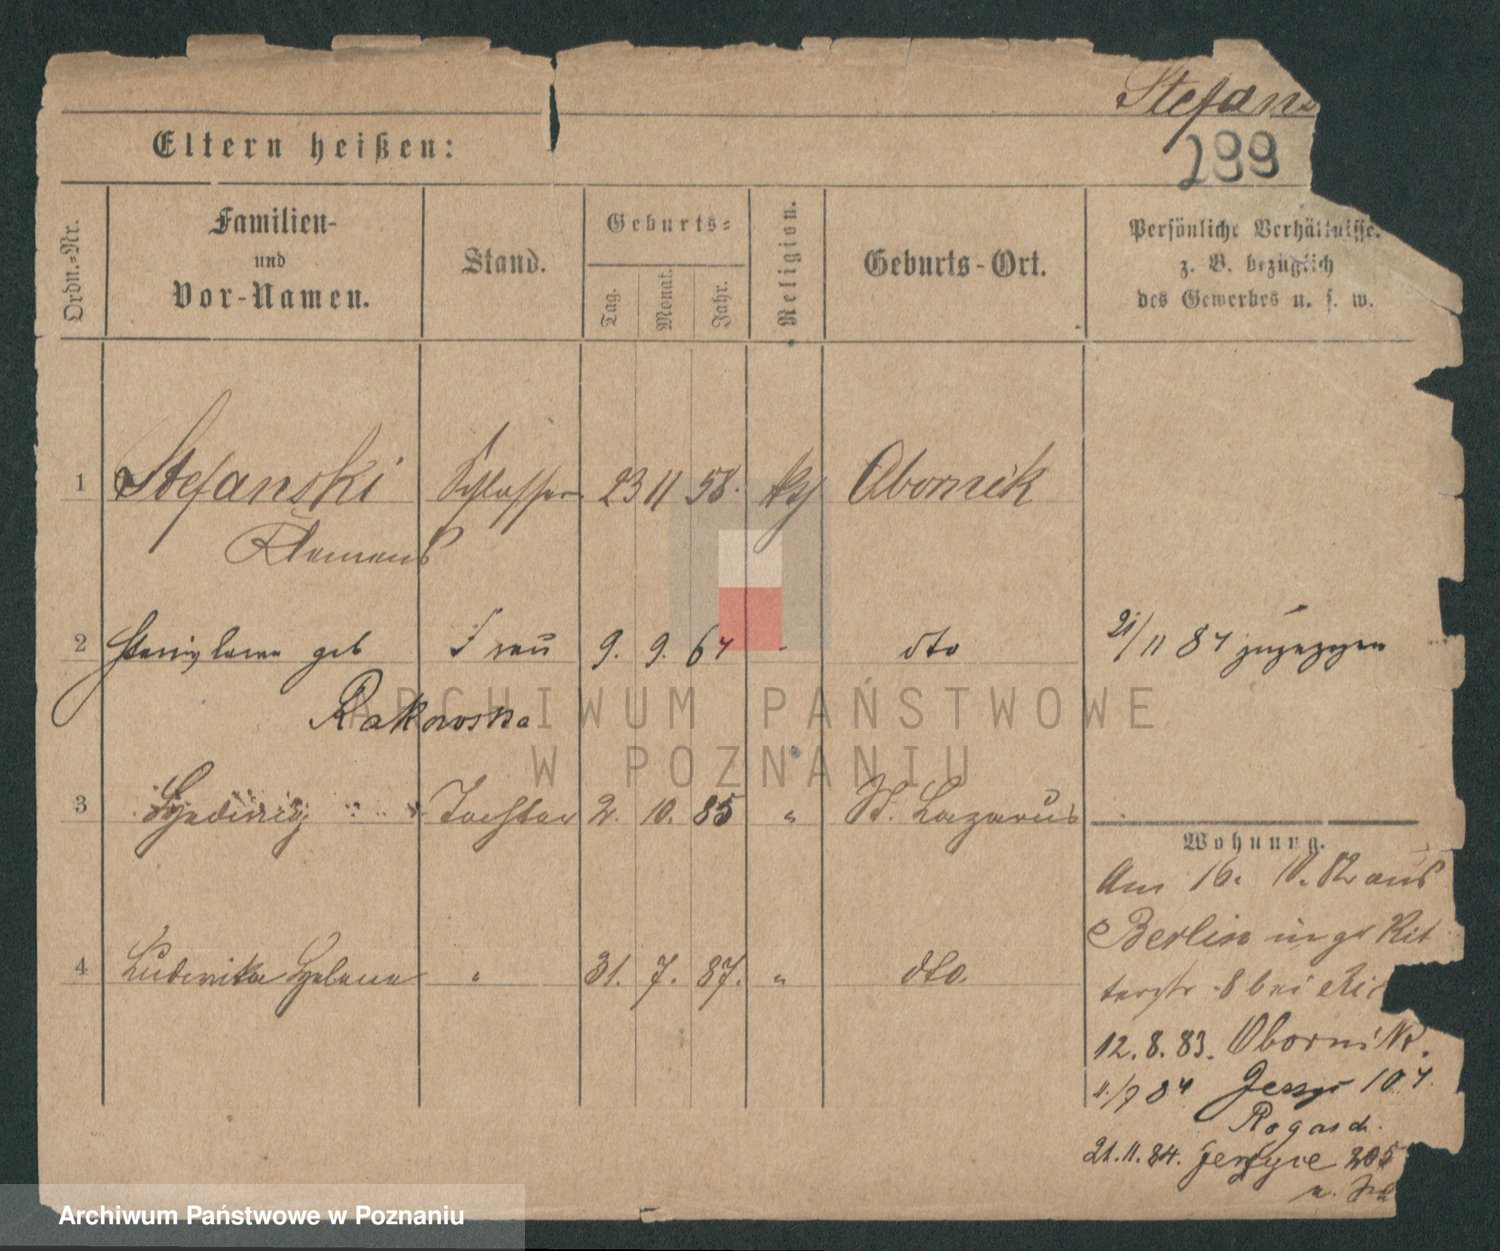 Stefans
299
Eltern heißen:
Ordn.-Nr.
Familien-
und
Vor-Namen.
Stand.
Geburts-
Tag.
Monat.
Jahr.
Religion.
Geburts-Ort.
Persönliche Verhältnisse.
z. B. bezüglich
des Gewerbes u. s. w.
1 Stefanski Schlosser 23 11 58. kth Obornik
Klemens
2 Stanislawa geb Frau 9. 9. 64 - dto 21/11 84 zugezogen
Rakowska
3 Hedwig Tochter 2. 10. 85 " St. Lazarus
Wohnung.
Am 16. 10. 82 aus
Berlin
4 Ludwika Helena " 31. 7. 87. " dto.
terstr 8 bei
12.8.83. Obornik.
11/7 84 Jersyz 104.
Rogasch.
21.11.84. Jerzyce 205
ARCHIWUM PAŃSTWOWE
W POZNANIU
Archiwum Państwowe w Poznaniu